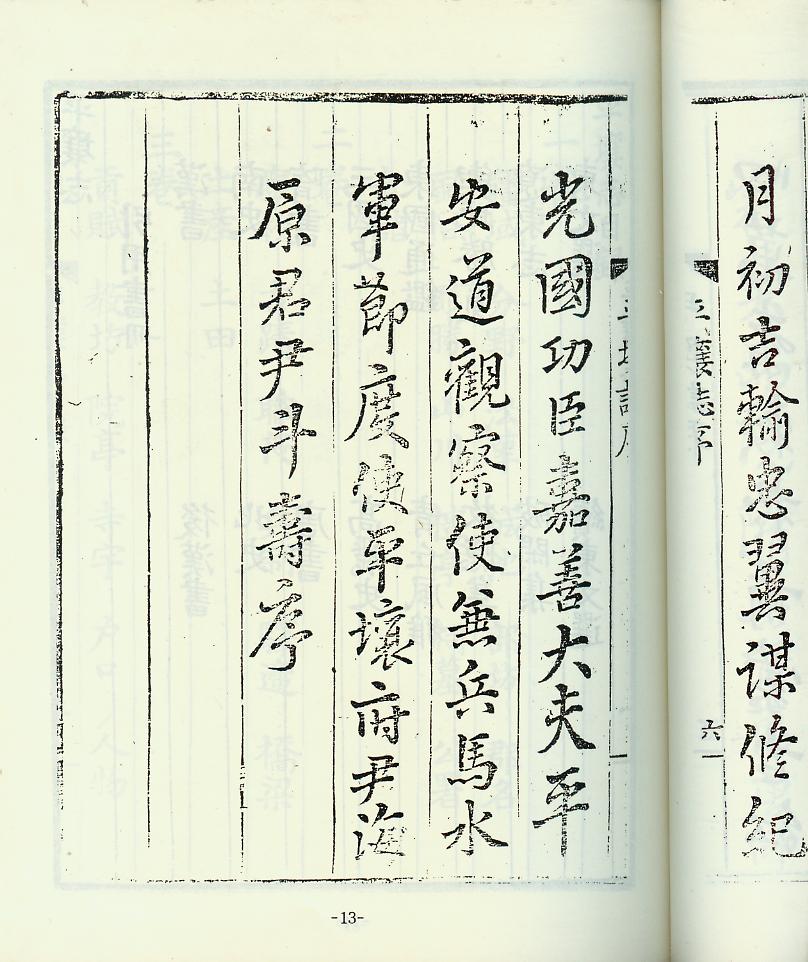 月初吉輸忠翼謨修紀
平壤志序
六
光國功臣嘉善大夫平
安道觀察使兼兵馬水
軍節度使平壤府尹海
原君尹斗壽序
-13-